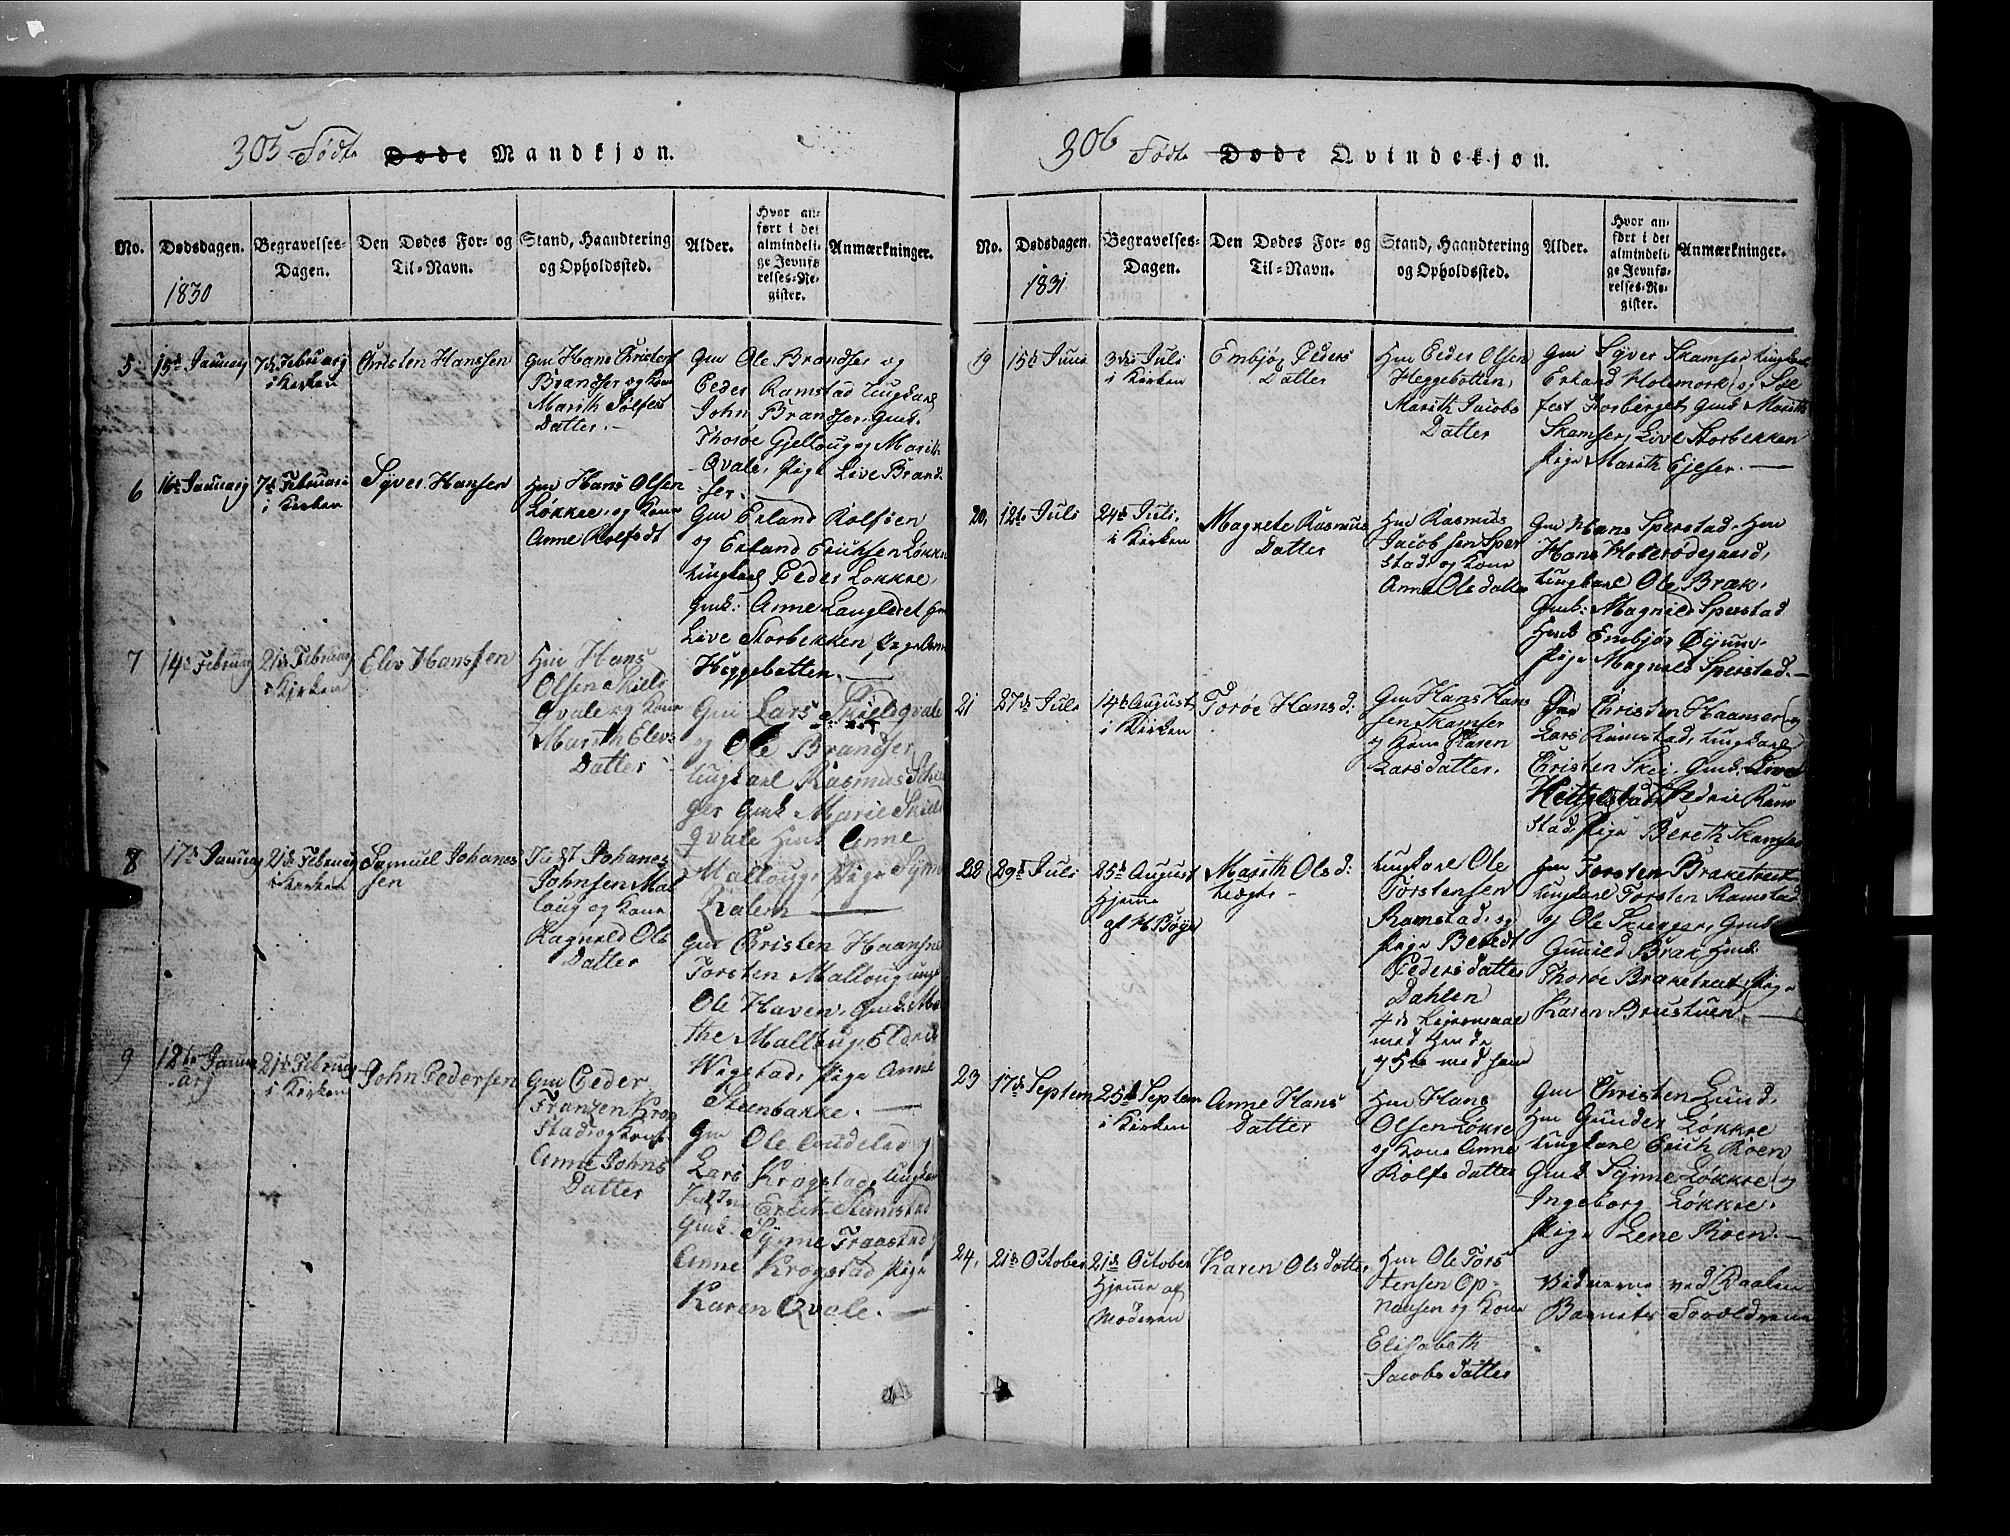 305 Fødte Døde Mandkjøn.
No.
Dødsdagen.
1830
Begravelses-
Dagen.
Den Dødes For- og
Til-Navn.
Stand, Haandtering
og Opholdssted.
Alder.
Hvor an-
ført i det
almindeli-
ge Jevnfø-
relses-Re-
gister.
Anmærkninger.
5
15de Januarj
7de Februarj
i Kirken
Christen Hanssen
Gm Hans Christens
Brandser og Kone
Marith Sølfest
Datter.
Gm Ole Brandser og
Peder Ramstad Ungkarl
John Brandser, Gmk.
Thorøe Gjeltoug og Marith
Qvale, Pige Live Brand-
ser.
6
16de Januarj
7de Februari
i Kirken
Syver Hansen
Hm Hans Olsen
Løkkre og Kone
Anne Rolfsdt
Gm Erland Rolfsen
og Erland Erichsen Løkkre
Ungkarl Peder Løkkre,
Gmk: Anne Langledet Hmk
Live Storbekken Pige Anne
Heggebotten.
7
14de Februarj
21de Februarj
i Kirken
Elev Hanssen
Hm Hans
Olsen Skiels
qvale og Kone
Marith Elevs
Datter
Gm Lars Skielsqvale
og Ole Brandser
Ungkarl Rasmus
ger Gmk Marie Skiels
qvale Hmk Anne
Malloug, Pige Synne
Dalen
8
17de Januarj
21de Februarj
i Kirken
Samuel Johanes
sen
Inst Johanes
Johnsen Mal
loug og Kone
Ragnild Ols
Datter
Gm Christen Haanser
Torsten Malloug ungk
Ole Haven, Gmk. Mar
the Malloug, Eldrie
Wigstad, Pige Anne
Steenbakke.
9
12te Janu
arj
21de Februarj
i Kirken
John Pedersen
Gm Peder
Franzen Krog
stad og Kone
Anne Johns
Datter
Gm Ole og
Lars Krogstad, Ungkarl
Erich Ramstad
Gmk. Synne Fraastad
Anne Krogstad Pige
Karen Qvale.
306 Fødte Døde Qvindekjøn.
No.
Dødsdagen.
1831
Begravelses-
Dagen.
Den Dødes For- og
Til-Navn.
Stand, Haandtering
og Opholdssted.
Alder.
Hvor an-
ført i det
almindeli-
ge Jevnfø-
relses-Re-
gister.
Anmærkninger.
19
15de Juni
3die Juli
i Kirken
Embjøg Peders
Datter
Hm Peder Olsen
Heggebotten,
Marith Jacobs
Datter
Gm Syver Skamser Ungkarl
Erland Holemork og Søl
fest Korberget, Gmk Marith
Skamser, Live Storbekken
Pige Marith Ejeser.
20,
12te Juli
24de Juli,
i Kirken
Magnete Rasmus
Datter
Hm Rasmus
Jacobsen Sper
stad og Kone
Anne Olsdatter
Gm Hans Sperstad, Hm
Hans Holerødegaard,
Ungkarl Ole Bræk,
Gmk: Magnild Sperstad
Hmk Embjør Øyum
Pige Magnild Sperstad.
21
27de Juli
14de August
i Kirken
Torøe Hansd:
Gm Hans Hans
sen Skamser
og Kone Karen
Larsdatter.
Gm Christen Haanser og
Lars Ramstad, Ungkarl
Christen Skei, Gmk. Live
Heitelstad Pedrie Ram
stad, Pige Bereth Skamser
22
29de Juli
25de August
Hjemme
af H. Bøye
Marith Olsd:
Uægte
Ungkarl Ole
Torstensen
Ramstad, og
Pige Beredt
Pedersdatter
Dahlen
4de Leiermaal
med Hende
og 5te med ham
Gm Torsten Braketrast
Ungkarl Torsten Ramstad
og Ole Skrugaer, Gmk
Gunild Bræk, Hmk
Thorøe Braketrast, Pige
Karen Brustuen
23
17de Septem
25de Septem
i Kirken
Anne Hans
Datter
Hm Hans
Olsen Løkre
og Kone Anne
Rolfsdatter
Gm Christen Lund,
Hm Gunder Løkkre
Ungkarl Erich Roen
Gmk Synne Løkkre og
Ingeborg Løkkre.
Pige Lene Roen.
24,
21de October
21de October
Hjemme af
Moderen
Karen Olsdatter
Hm Ole Tors
tensen Op-
nausen og Kone
Elisabeth
Jacobsdatter
Vidnerne ved Daaben
Barnets Forældrene